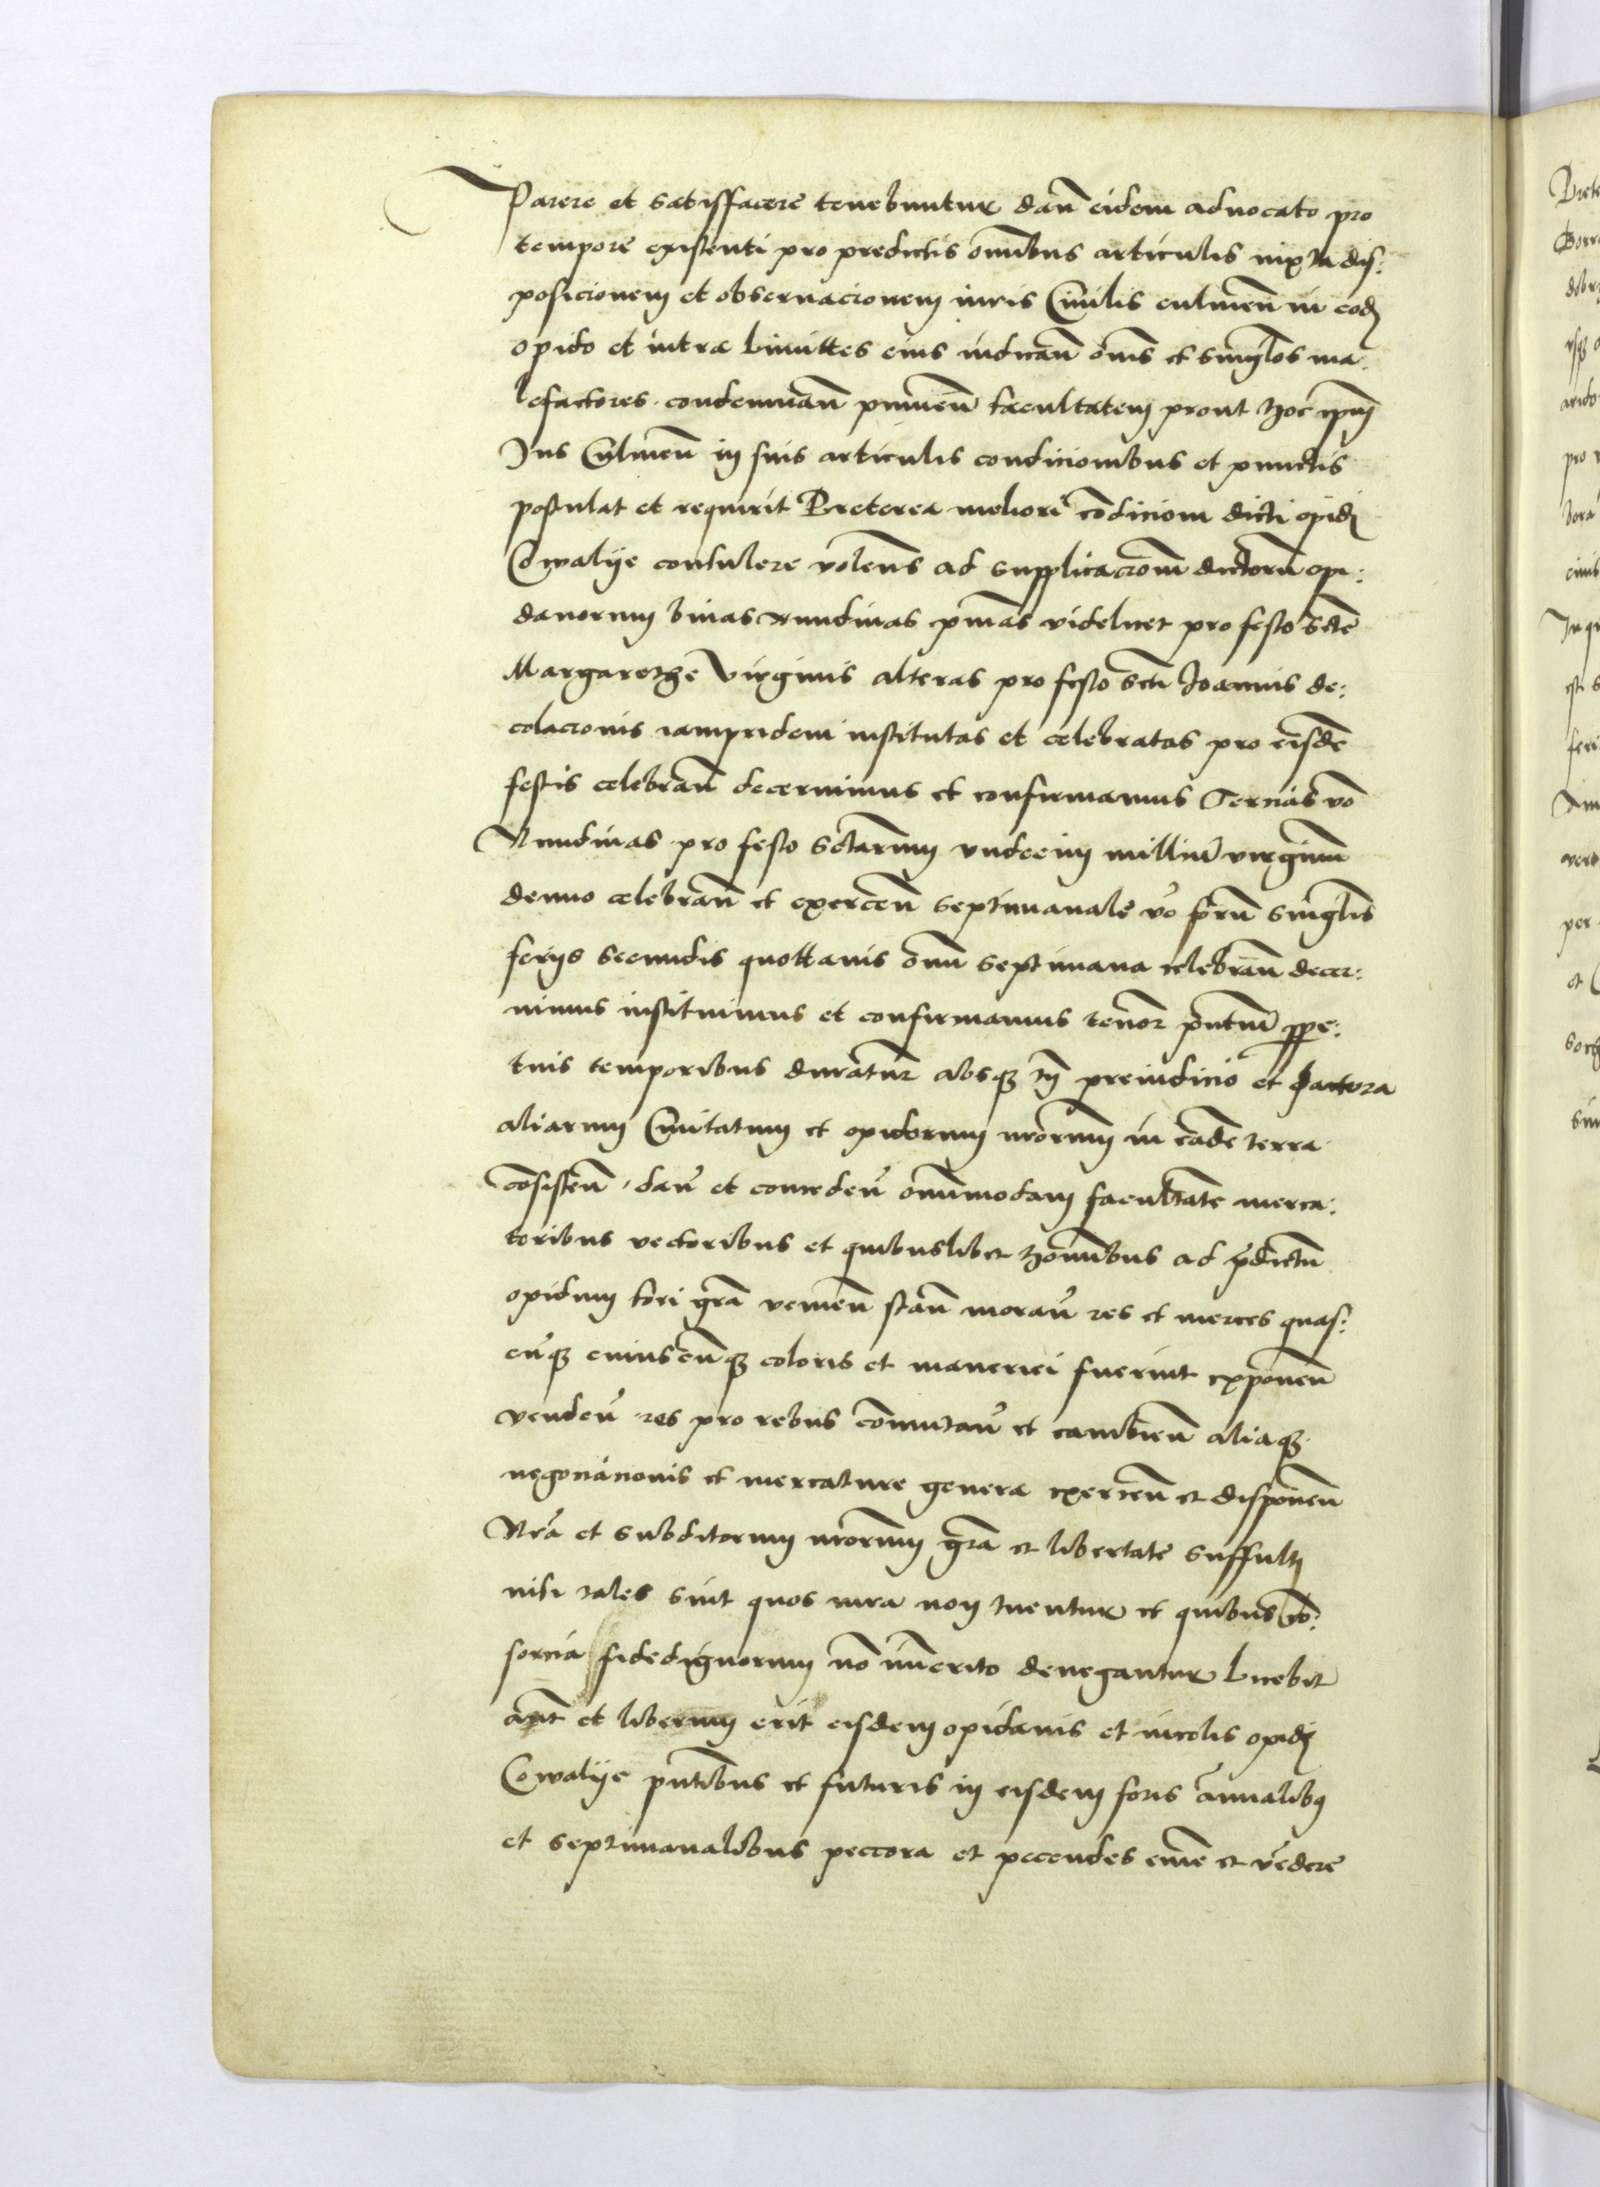 Parere et satisffacere tenebuntur dan̄ eidem aduocato pro
tempore existenti pro predictis om̄ibus articulis iuxta dis:
posicionem et obseruacionem iuris Ciuilis culmen̄ in eod
opido et intra Limittes eius iudican̄ om̄s et singlos ma
lefactores condemnan̄ punien̄ facultatem prout hoc ipm
Ius Culmen̄ in suis articulis condicionibus et punctis
postulat et requirit Preterea meliori cōdicioni dicti opid
Cowalije consulere volens ad supplicacionē dictorū opi:
danorum binas nundinas pm̄as videlicet pro festo Scte
Margarethe Virginis alteras pro festo Scti Ioannis de:
colacionis iampridem institutas et celebratas pro eisdē
festis celebran̄ decernimus et confirmamus Tercias vō
Nundinas pro festo Sctarum vndecim milliū virginum
denuo celebran̄ et exercen̄ septimanale vō forū singlis
ferijs secundis quottanis om̄i septimana celebran̄ decer:
nimus instituimus et confirmamus tenor pn̄tiū ppe:
tuis temporibus duratur absq tn̄ preiudicio et Iactora
aliarum Ciuitatum et opidorum nrorum in eadē terra
cōsisten̄ dan̄ et conceden̄ omnimodam facultatē merca:
toribus vectoribus et quibuslibet hominibus ad pdictū
opidum fori gra venien̄ stan̄ moran̄ res et merces quas:
cūq cuiuscunq coloris et maneriei fuerint exponen̄
venden̄ res pro rebus cōmutan̄ et cambien̄ aliaq
negociacionis et mercature genera exercen̄ et disponen̄
Nra et subditorum nrorum gra et libertate suffulti
nisi tales sint quos iura non tuentur et quibus cō:
sorcia fidedignorum nō im̄erito denegantur Licebit
aut et liberum erit eisdem opidanis et incolis opid
Cowalije pn̄tibus et futuris in eisdem foris annalibus
et septimanalibus peccora et peccudes eme et vēdere